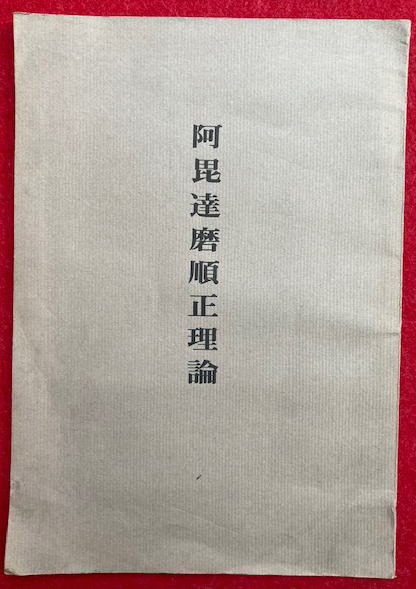 阿毘達磨順正理論